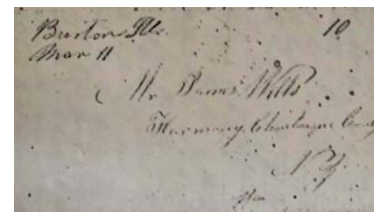 Burton Ills. 10
Mar 11
Mr James Wills
Harmony Chautauque County
N.Y.